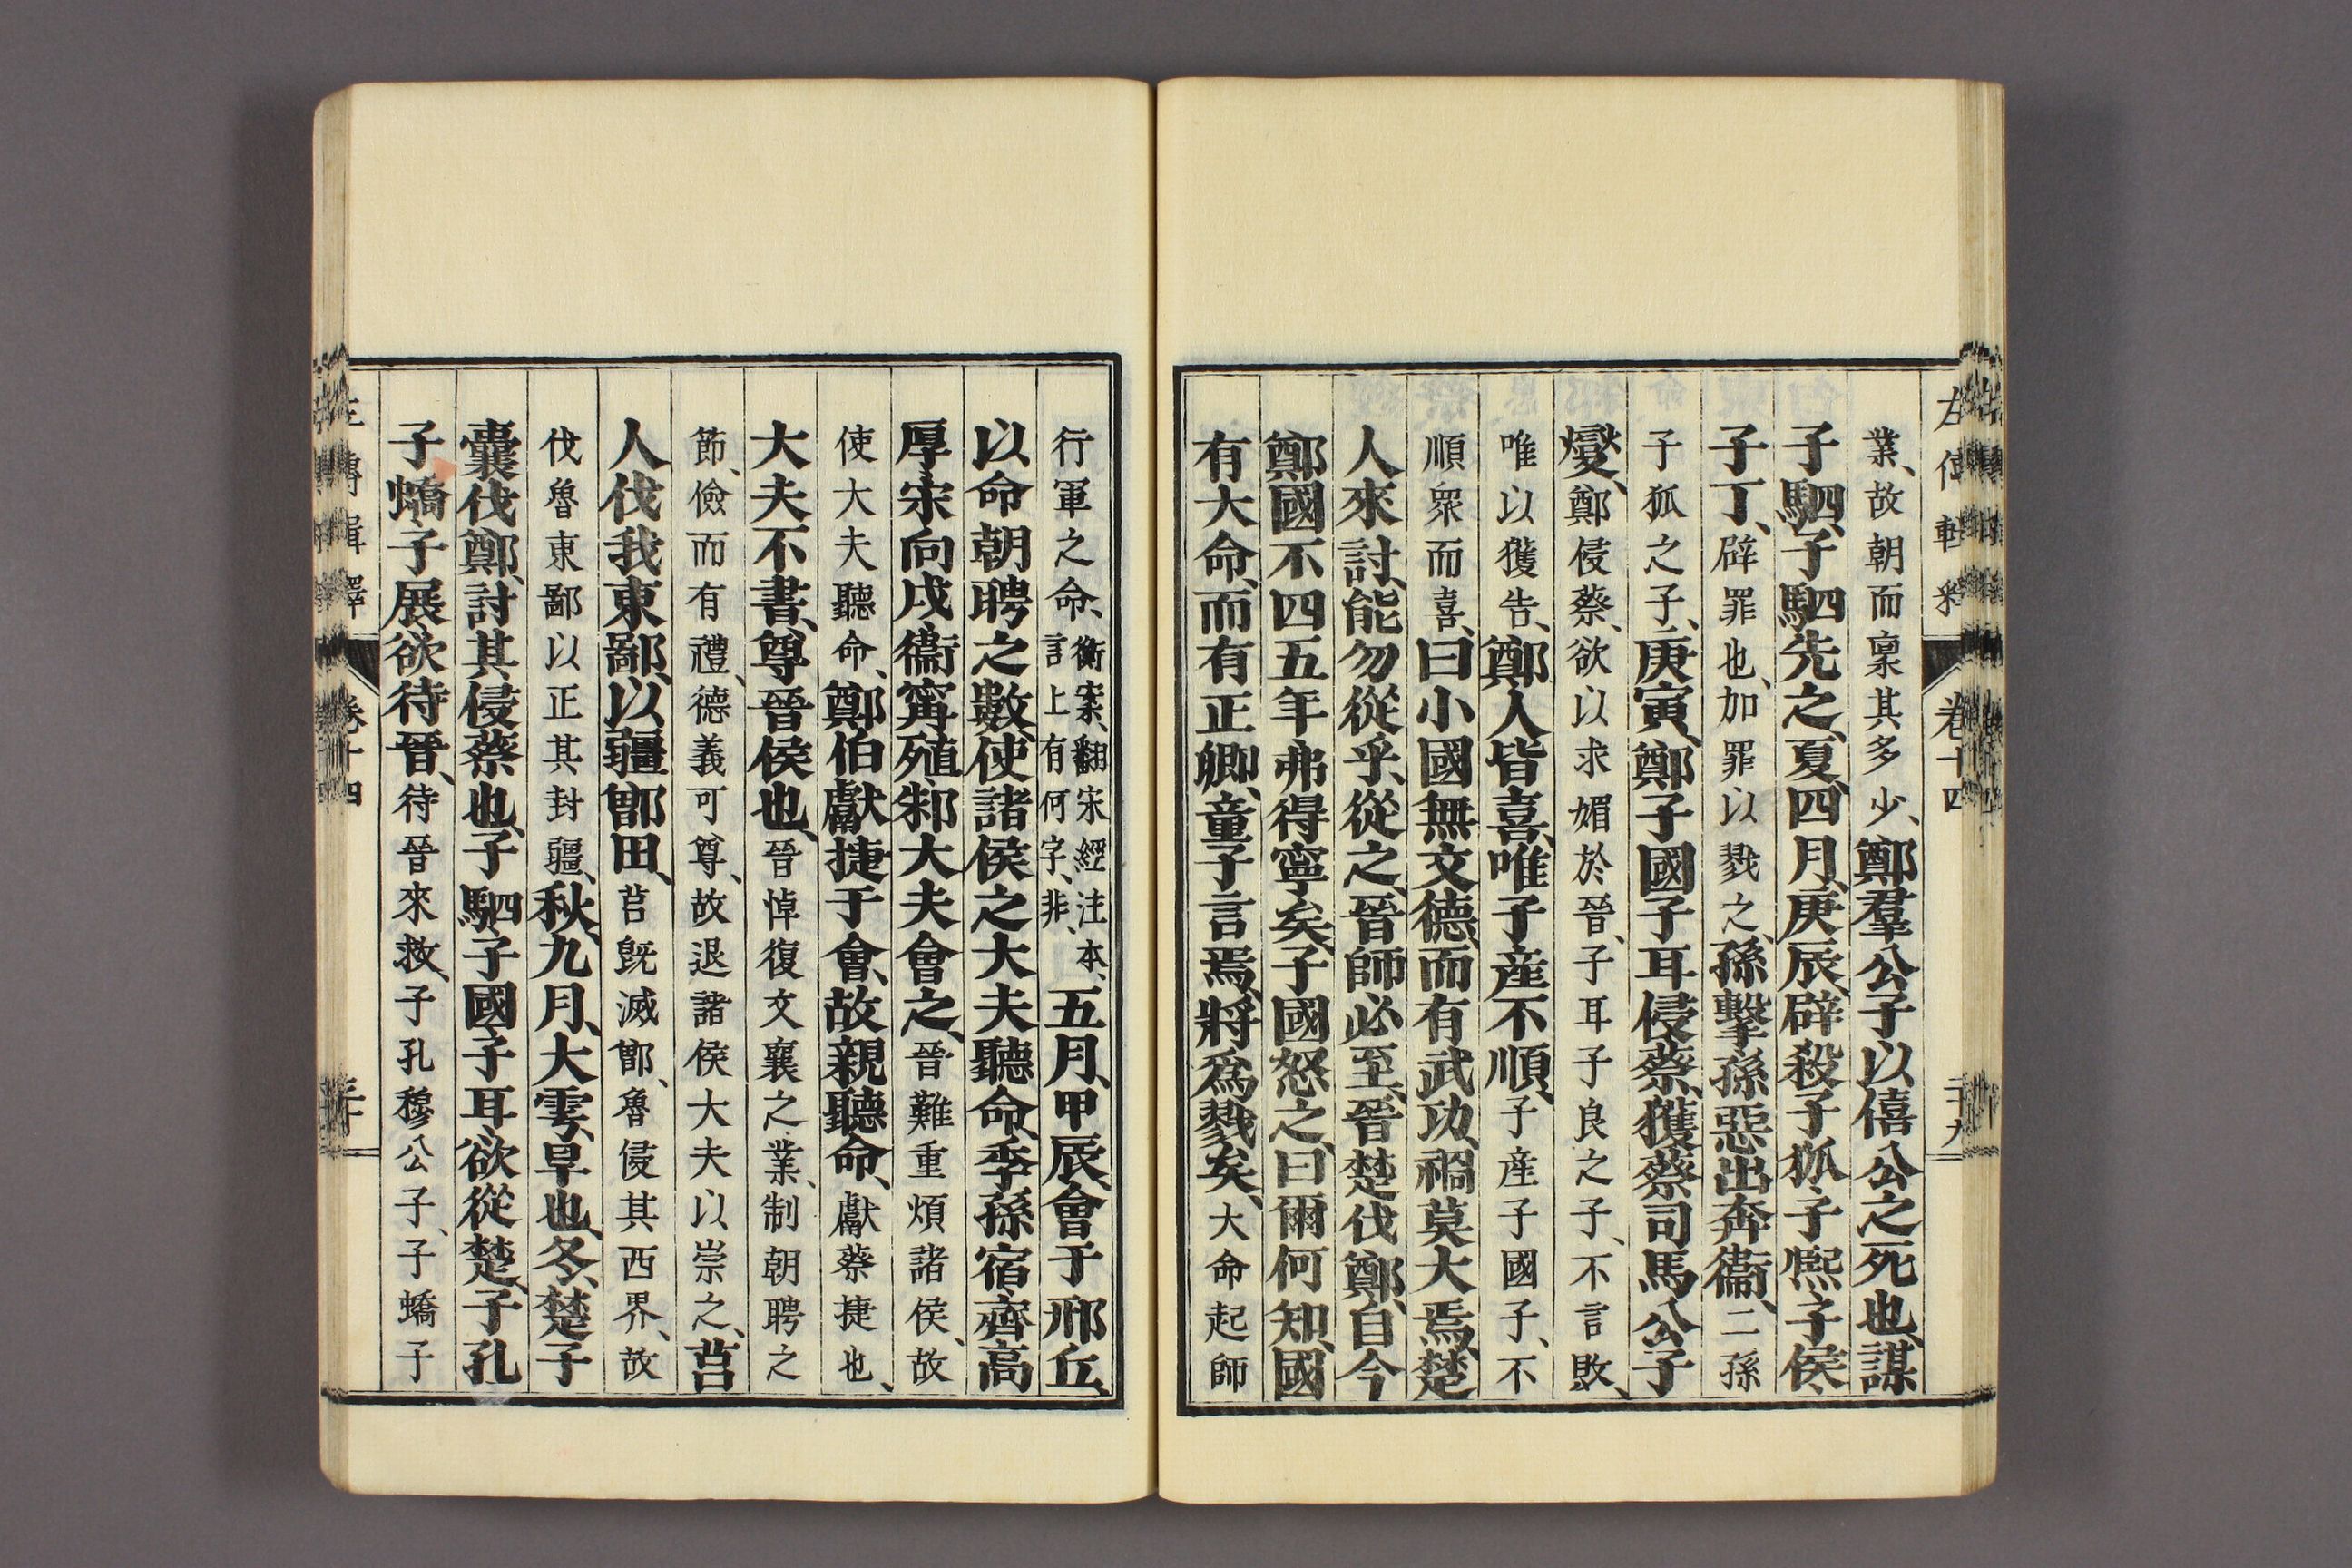 左傳輯釋 卷十四 二十九
業、故朝而稟其多少、鄭羣公子以僖公之死也、謀
子駟、子駟先之、夏、四月、庚辰、辟殺子狐、子熙、子侯、
子丁、辟罪也、加罪以戮之、孫擊孫惡出奔衞、二孫
子狐之子、庚寅、鄭子國子耳侵蔡、獲蔡司馬公子
燮、鄭侵蔡、欲以求媚於晉、子耳子良之子、不言敗、
唯以獲告、鄭人皆喜、唯子産不順、子産子國子、不
順衆而喜、曰小國無文德、而有武功、禍莫大焉、楚
人來討、能勿從乎、從之、晉師必至、晉楚伐鄭、自今
鄭國不四五年弗得寧矣、子國怒之、曰爾何知、國
有大命、而有正卿、童子言焉、將爲戮矣、大命起師
行軍之命、衡案、翻宋經注本、言上有何字、非、五月、甲辰、會于邢丘、
以命朝聘之數、使諸侯之大夫聽命、季孫宿、齊高
厚、宋向戌、衞甯殖、邾大夫會之、晉難重煩諸侯、故
使大夫聽命、鄭伯獻捷于會、故親聽命、獻蔡捷也、
大夫不書、尊晉侯也、晉悼復文襄之業、制朝聘之
節、儉而有禮、德義可尊、故退諸侯大夫以崇之、莒
人伐我東鄙、以疆鄫田、莒既滅鄫、魯侵其西界、故
伐魯東鄙以正其封疆、秋、九月、大雩、旱也、冬、楚子
囊伐鄭、討其侵蔡也、子駟、子國子耳、欲從楚、子孔
子蟜、子展、欲待晉、待晉來救、子孔穆公子、子蟜子
左傳輯釋 卷十四 三十